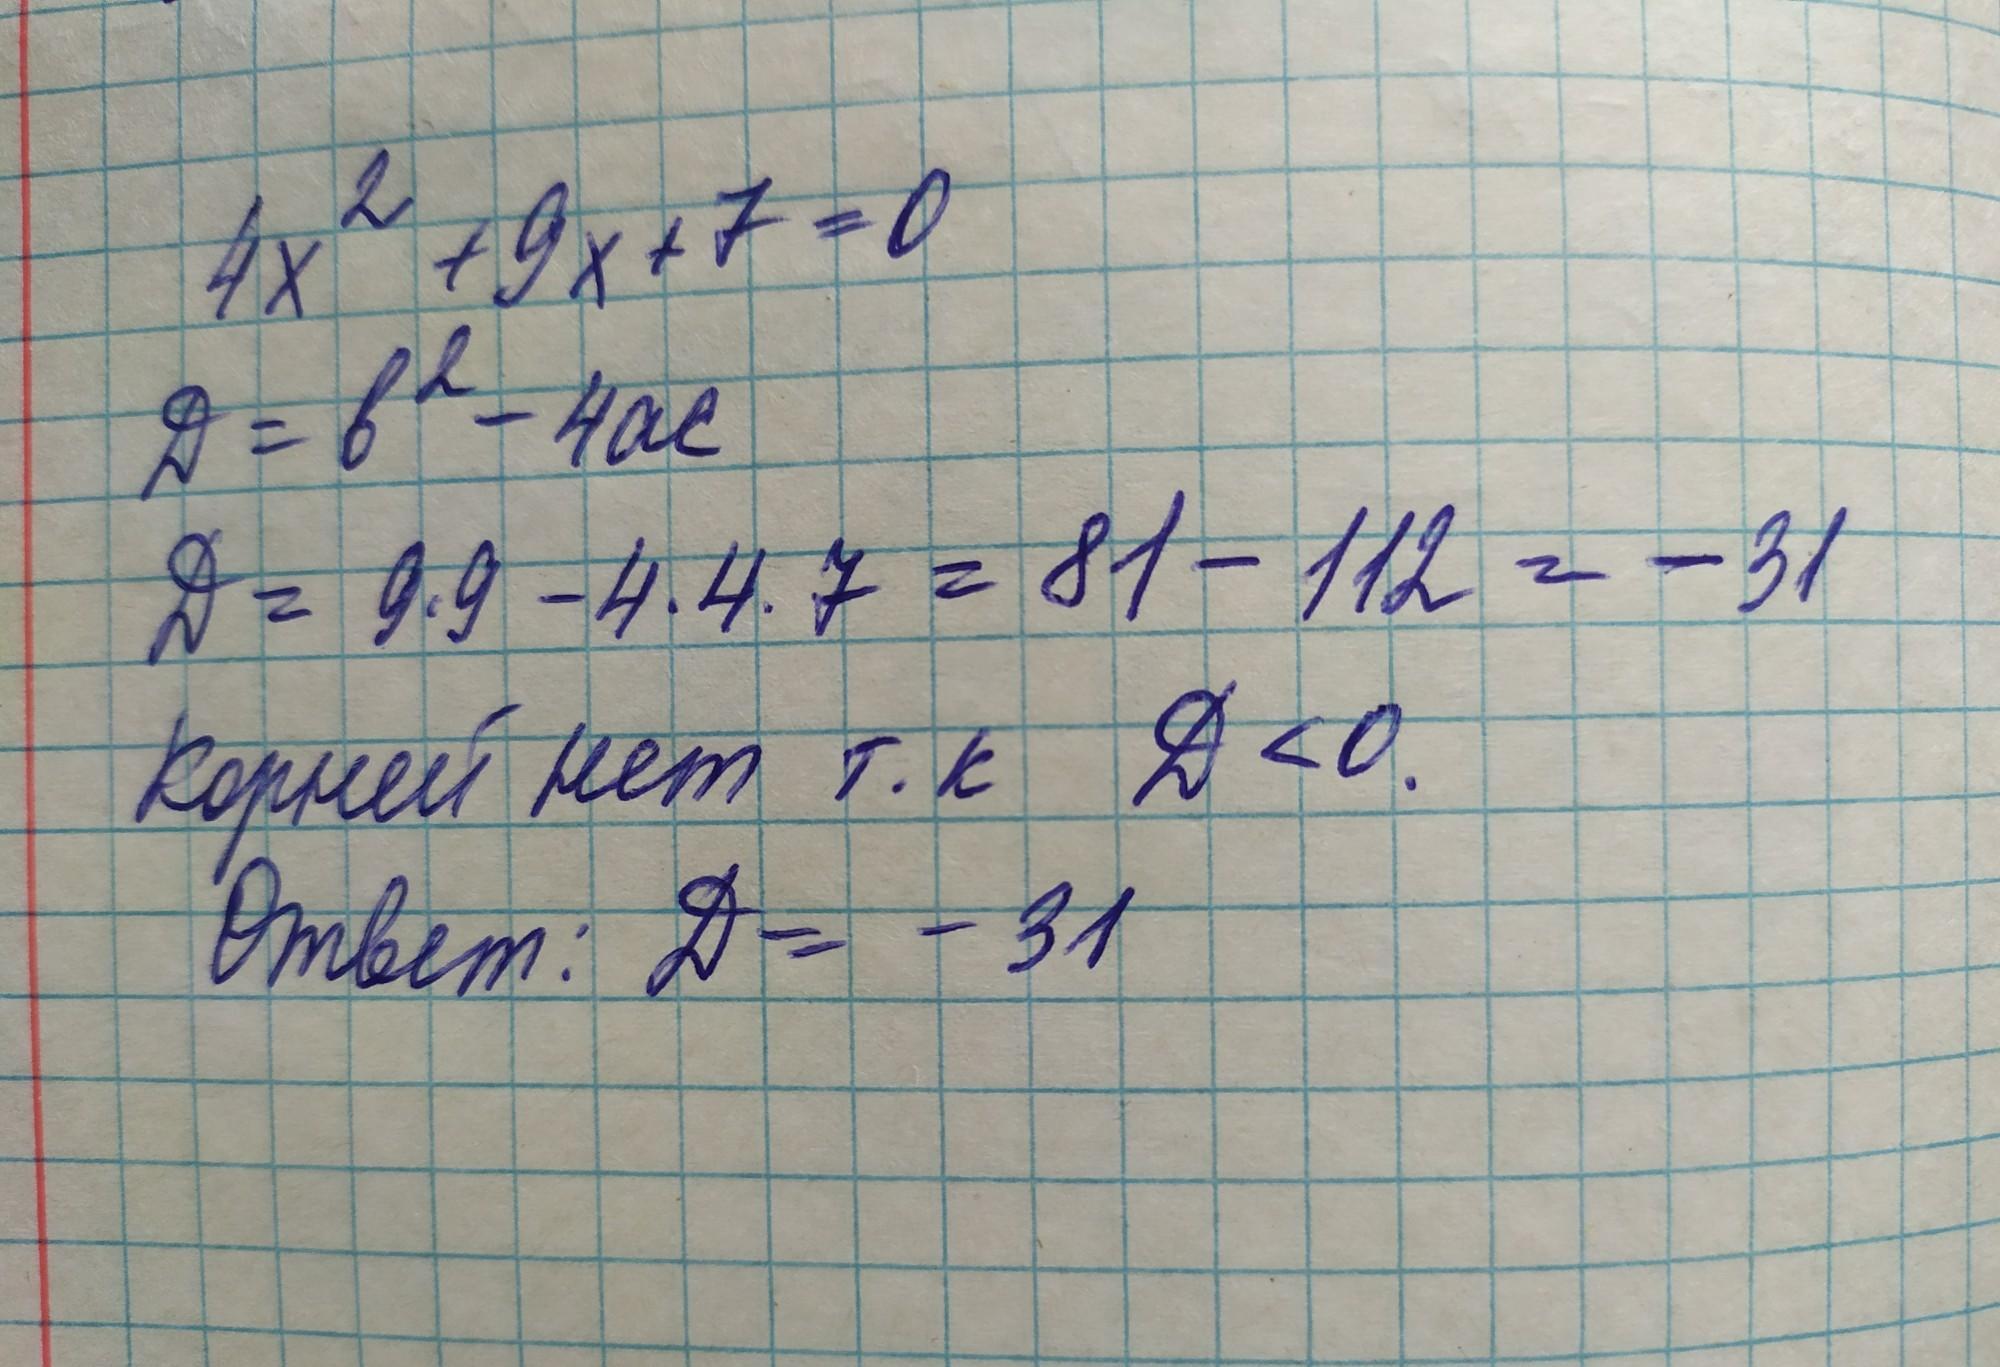 4x² + 9x + 7 = 0
D = b² - 4ac
D = 9·9 - 4·4·7 = 81 - 112 = - 31
Корней нет т.к D < 0.
Ответ: D = - 31